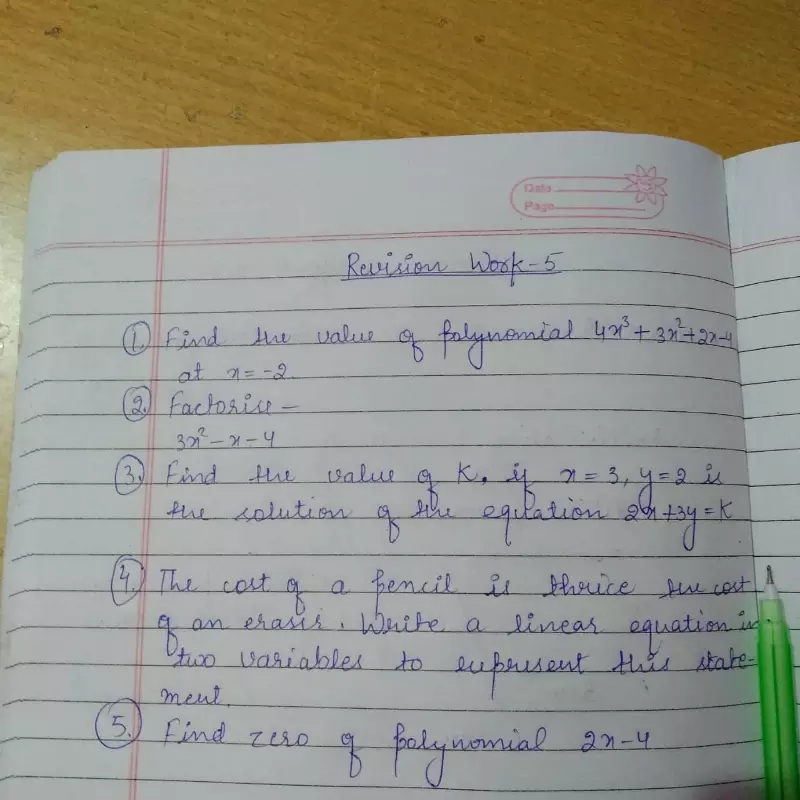 Date
Page
Revision Work-5
1. Find the value of polynomial 4x³+3x²+2x-4
at x=-2
2. Factorise -
3x²-x-4
3. Find the value of K, if x=3, y=2 is
the solution of the equation 2x+3y=K
4. The cost of a pencil is thrice the cost
of an eraser. Write a linear equation in
two variables to represent this state-
ment.
5. Find zero of polynomial 2x-4